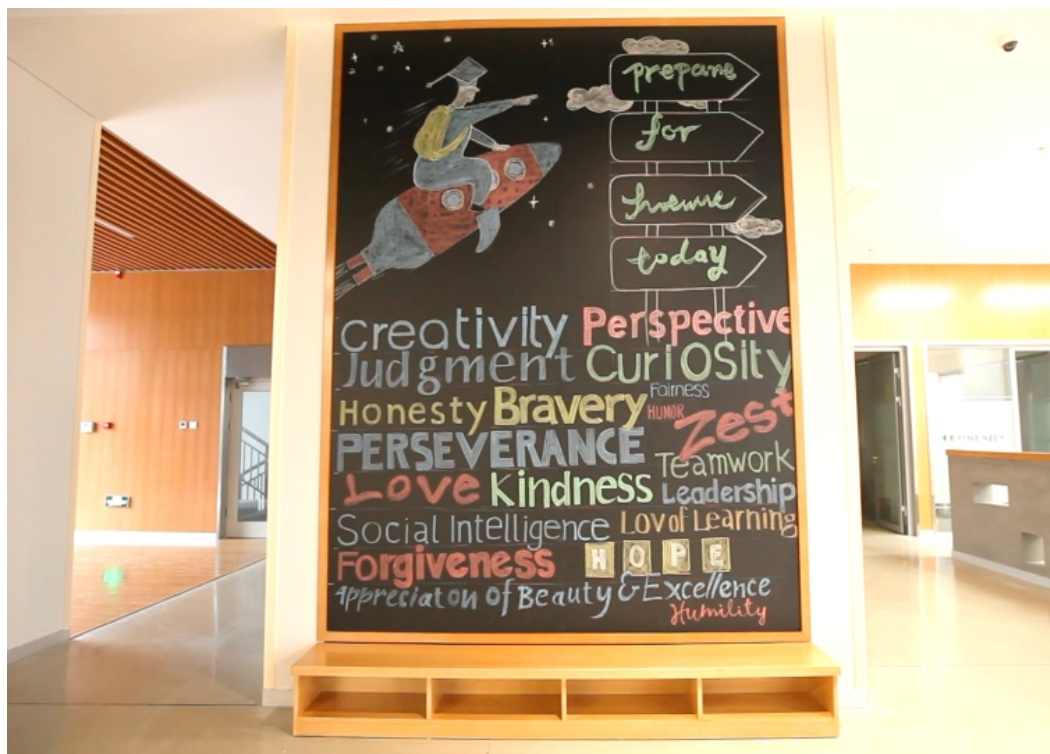 prepare
for
today
Creativity Perspective
Judgment Curiosity
Fairness
Honesty Bravery HUMOR Zest
PERSEVERANCE
Teamwork
Love Kindness Leadership
Social Intelligence Lov of Learning
Forgiveness HOPE
Appreciaton Of Beauty & Excellence
Humility
COMMUNITY